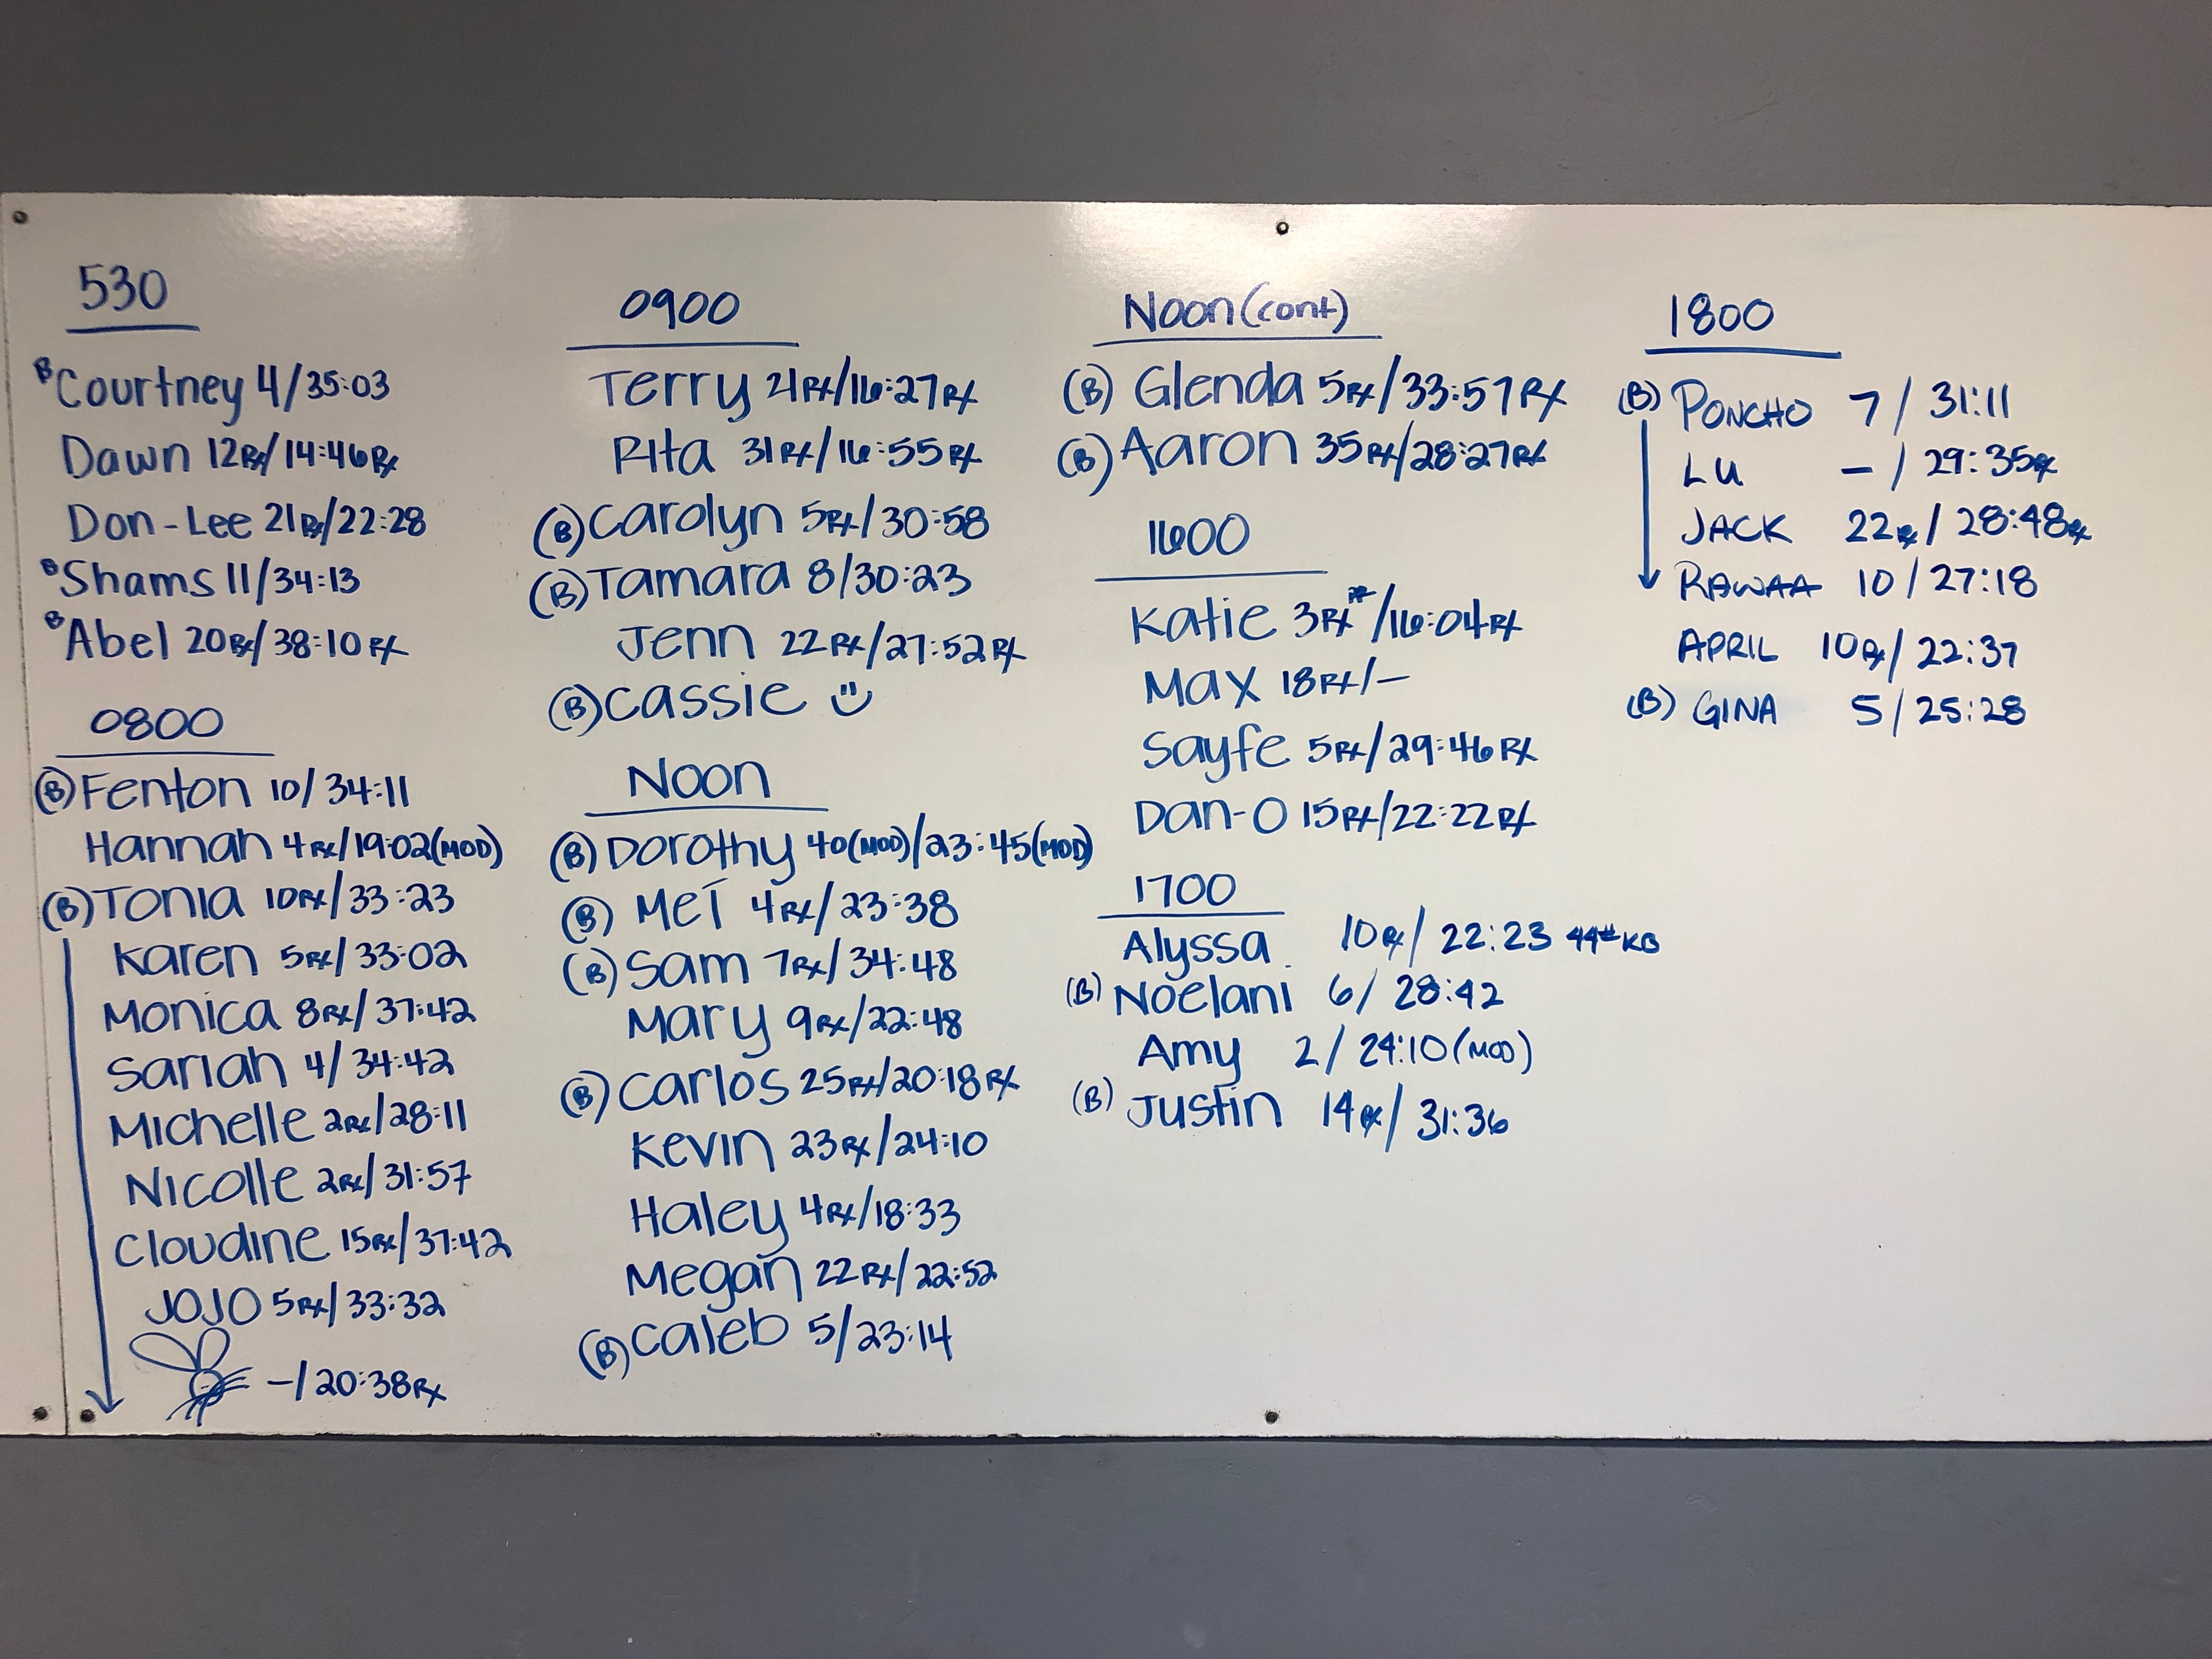 530
B Courtney 4/35:03
Dawn 12Rx/14:46Rx
Don-Lee 21Rx/22:28
B Shams 11/34:13
B Abel 20Rx/38:10Rx
0800
(B) Fenton 10/34:11
Hannah 4Rx/19:02(MOD)
(B) Tonia 10Rx/33:23
Karen 5Rx/33:02
Monica 8Rx/37:42
Sariah 4/34:42
Michelle 2Rx/28:11
Nicolle 2Rx/31:57
Cloudine 15Rx/37:42
JOJO 5Rx/33:32
-/20:38Rx
0900
Terry 21Rx/16:27Rx
Rita 31Rx/16:55Rx
(B) Carolyn 5Rx/30:58
(B) Tamara 8/30:23
Jenn 22Rx/27:52Rx
(B) Cassie
Noon
(B) Dorothy 40(MOD)/23:45(MOD)
(B) Mei 4Rx/23:38
(B) Sam 7Rx/34:48
Mary 9Rx/22:48
(B) Carlos 25Rx/20:18Rx
Kevin 23Rx/24:10
Haley 4Rx/18:33
Megan 22Rx/22:52
(B) Caleb 5/23:14
Noon (cont)
(B) Glenda 5Rx/33:57Rx
(B) Aaron 35Rx/28:27Rx
1600
Katie 3Rx/16:04Rx
Max 18Rx/-
Sayfe 5Rx/29:46Rx
Dan-O 15Rx/22:22Rx
1700
Alyssa 10Rx/22:23 44# KB
(B) Noelani 6/28:42
Amy 2/24:10(MOD)
(B) Justin 14Rx/31:36
1800
(B) PONCHO 7/31:11
LU -/29:35Rx
JACK 22Rx/28:48Rx
RAWAA 10/27:18
APRIL 10Rx/22:37
(B) GINA 5/25:28